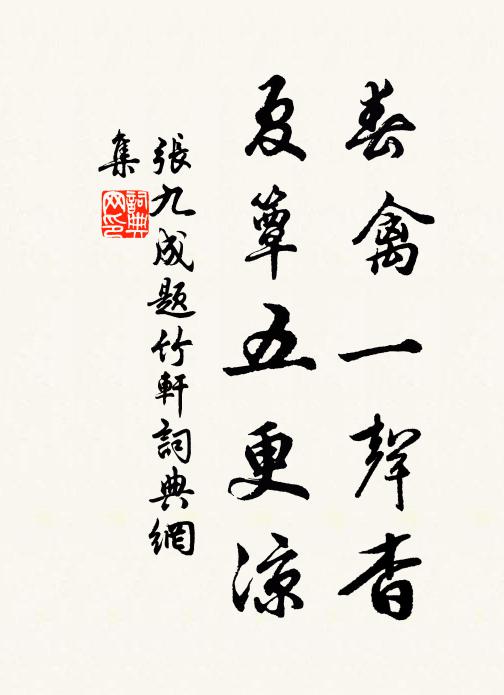 春禽一聲杳
夏簟五更涼
張九成題竹軒詞典網
集
詞典
网印